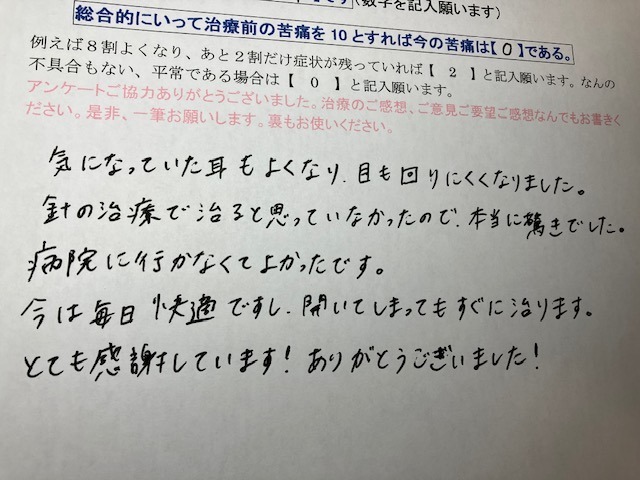 です(数字を記入願います)
総合的にいって治療前の苦痛を 10 とすれば今の苦痛は【 0 】である。
例えば8割よくなり、あと2割だけ症状が残っていれば【 2 】と記入願います。なんの
不具合もない、平常である場合は【 0 】と記入願います。
アンケートご協力ありがとうございました。治療のご感想、ご意見ご要望ご感想なんでもお書きく
ださい。是非、一筆お願いします。裏もお使いください。
気になっていた耳もよくなり、目も回りにくくなりました。
針の治療で治ると思っていなかったので、本当に驚きでした。
病院に行かなくてよかったです。
今は毎日 快適ですし、開いてしまってもすぐに治ります。
とても感謝しています! ありがとうございました!